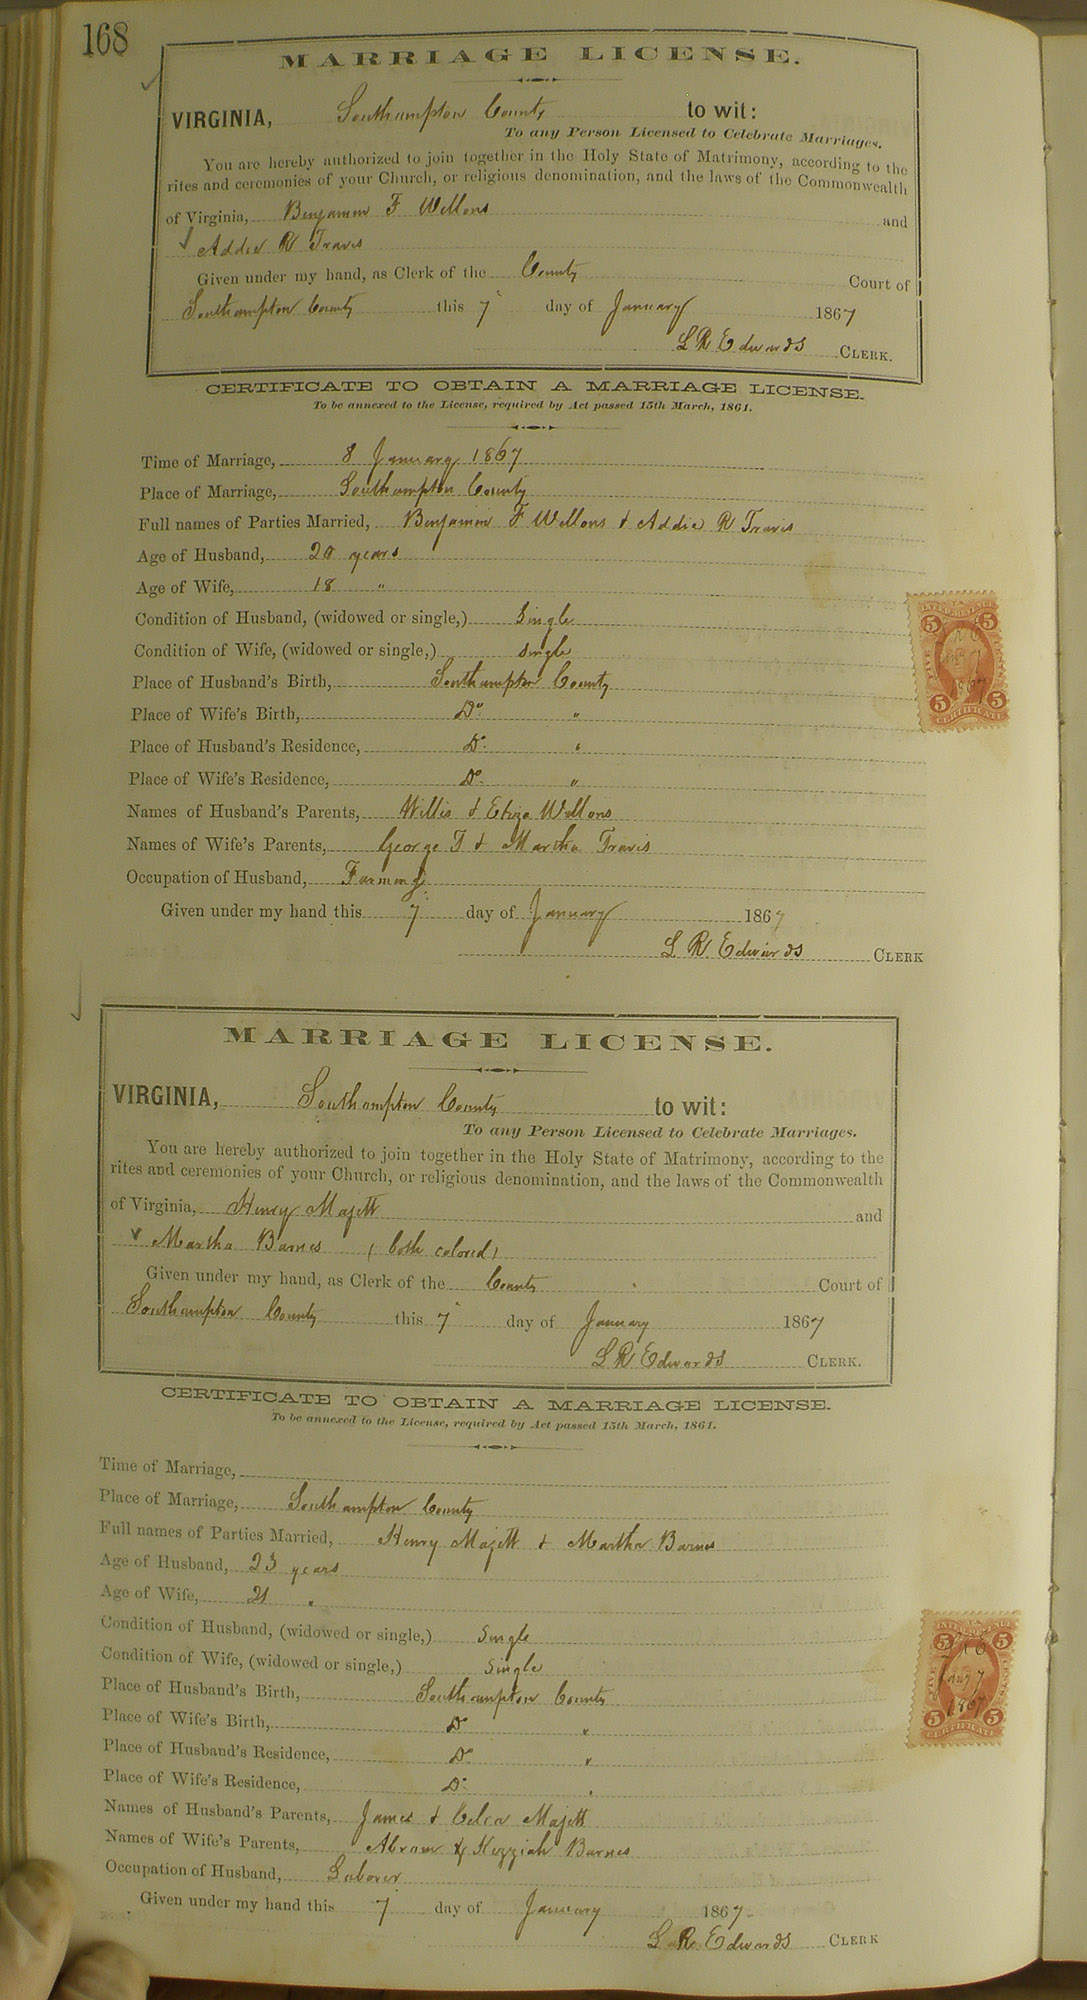 168
MARRIAGE LICENSE.
VIRGINIA, Southampton County to wit:
To any Person Licensed to Celebrate Marriages.
You are hereby authorized to join together in the Holy State of Matrimony, according to the
rites and ceremonies of your Church, or religious denomination, and the laws of the Commonwealth
of Virginia, Benjamin F Wellons and
Addie R Travis
Given under my hand, as Clerk of the County Court of
Southampton County this 7 day of January 1867
L R Edwards CLERK.
CERTIFICATE TO OBTAIN A MARRIAGE LICENSE.
To be annexed to the License, required by Act passed 15th March, 1861.
Time of Marriage, 8 January 1867
Place of Marriage, Southampton County
Full names of Parties Married, Benjamin F Wellons & Addie R Travis
Age of Husband, years
Age of Wife, 18 "
Condition of Husband, (widowed or single,) Single
Condition of Wife, (widowed or single,) Single
Place of Husband's Birth, Southampton County
Place of Wife's Birth, Do "
Place of Husband's Residence, Do "
Place of Wife's Residence, Do "
Names of Husband's Parents, Willis & Eliza Wellons
Names of Wife's Parents, George T & Martha Travis
Occupation of Husband, Farming
Given under my hand this 7 day of January 1867
L R Edwards CLERK
MARRIAGE LICENSE.
VIRGINIA, Southampton County to wit:
To any Person Licensed to Celebrate Marriages.
You are hereby authorized to join together in the Holy State of Matrimony, according to the
rites and ceremonies of your Church, or religious denomination, and the laws of the Commonwealth
of Virginia, Henry Majett and
Martha Barnes (both colored)
Given under my hand, as Clerk of the County Court of
Southampton County this 7 day of January 1867
L R Edwards CLERK.
CERTIFICATE TO OBTAIN A MARRIAGE LICENSE.
To be annexed to the License, required by Act passed 15th March, 1861.
Time of Marriage,
Place of Marriage, Southampton County
Full names of Parties Married, Henry Majett & Martha Barnes
Age of Husband, 23 years
Age of Wife, 21 "
Condition of Husband, (widowed or single,) Single
Condition of Wife, (widowed or single,) Single
Place of Husband's Birth, Southampton County
Place of Wife's Birth, Do "
Place of Husband's Residence, Do "
Place of Wife's Residence, Do "
Names of Husband's Parents, James & Celia Majett
Names of Wife's Parents, Abram & Kezziah Barnes
Occupation of Husband, Laborer
Given under my hand this 7 day of January 1867
L R Edwards CLERK
5 5
1867
5 5
CERTIFICATE
5 5
1867
5 5
CERTIFICATE